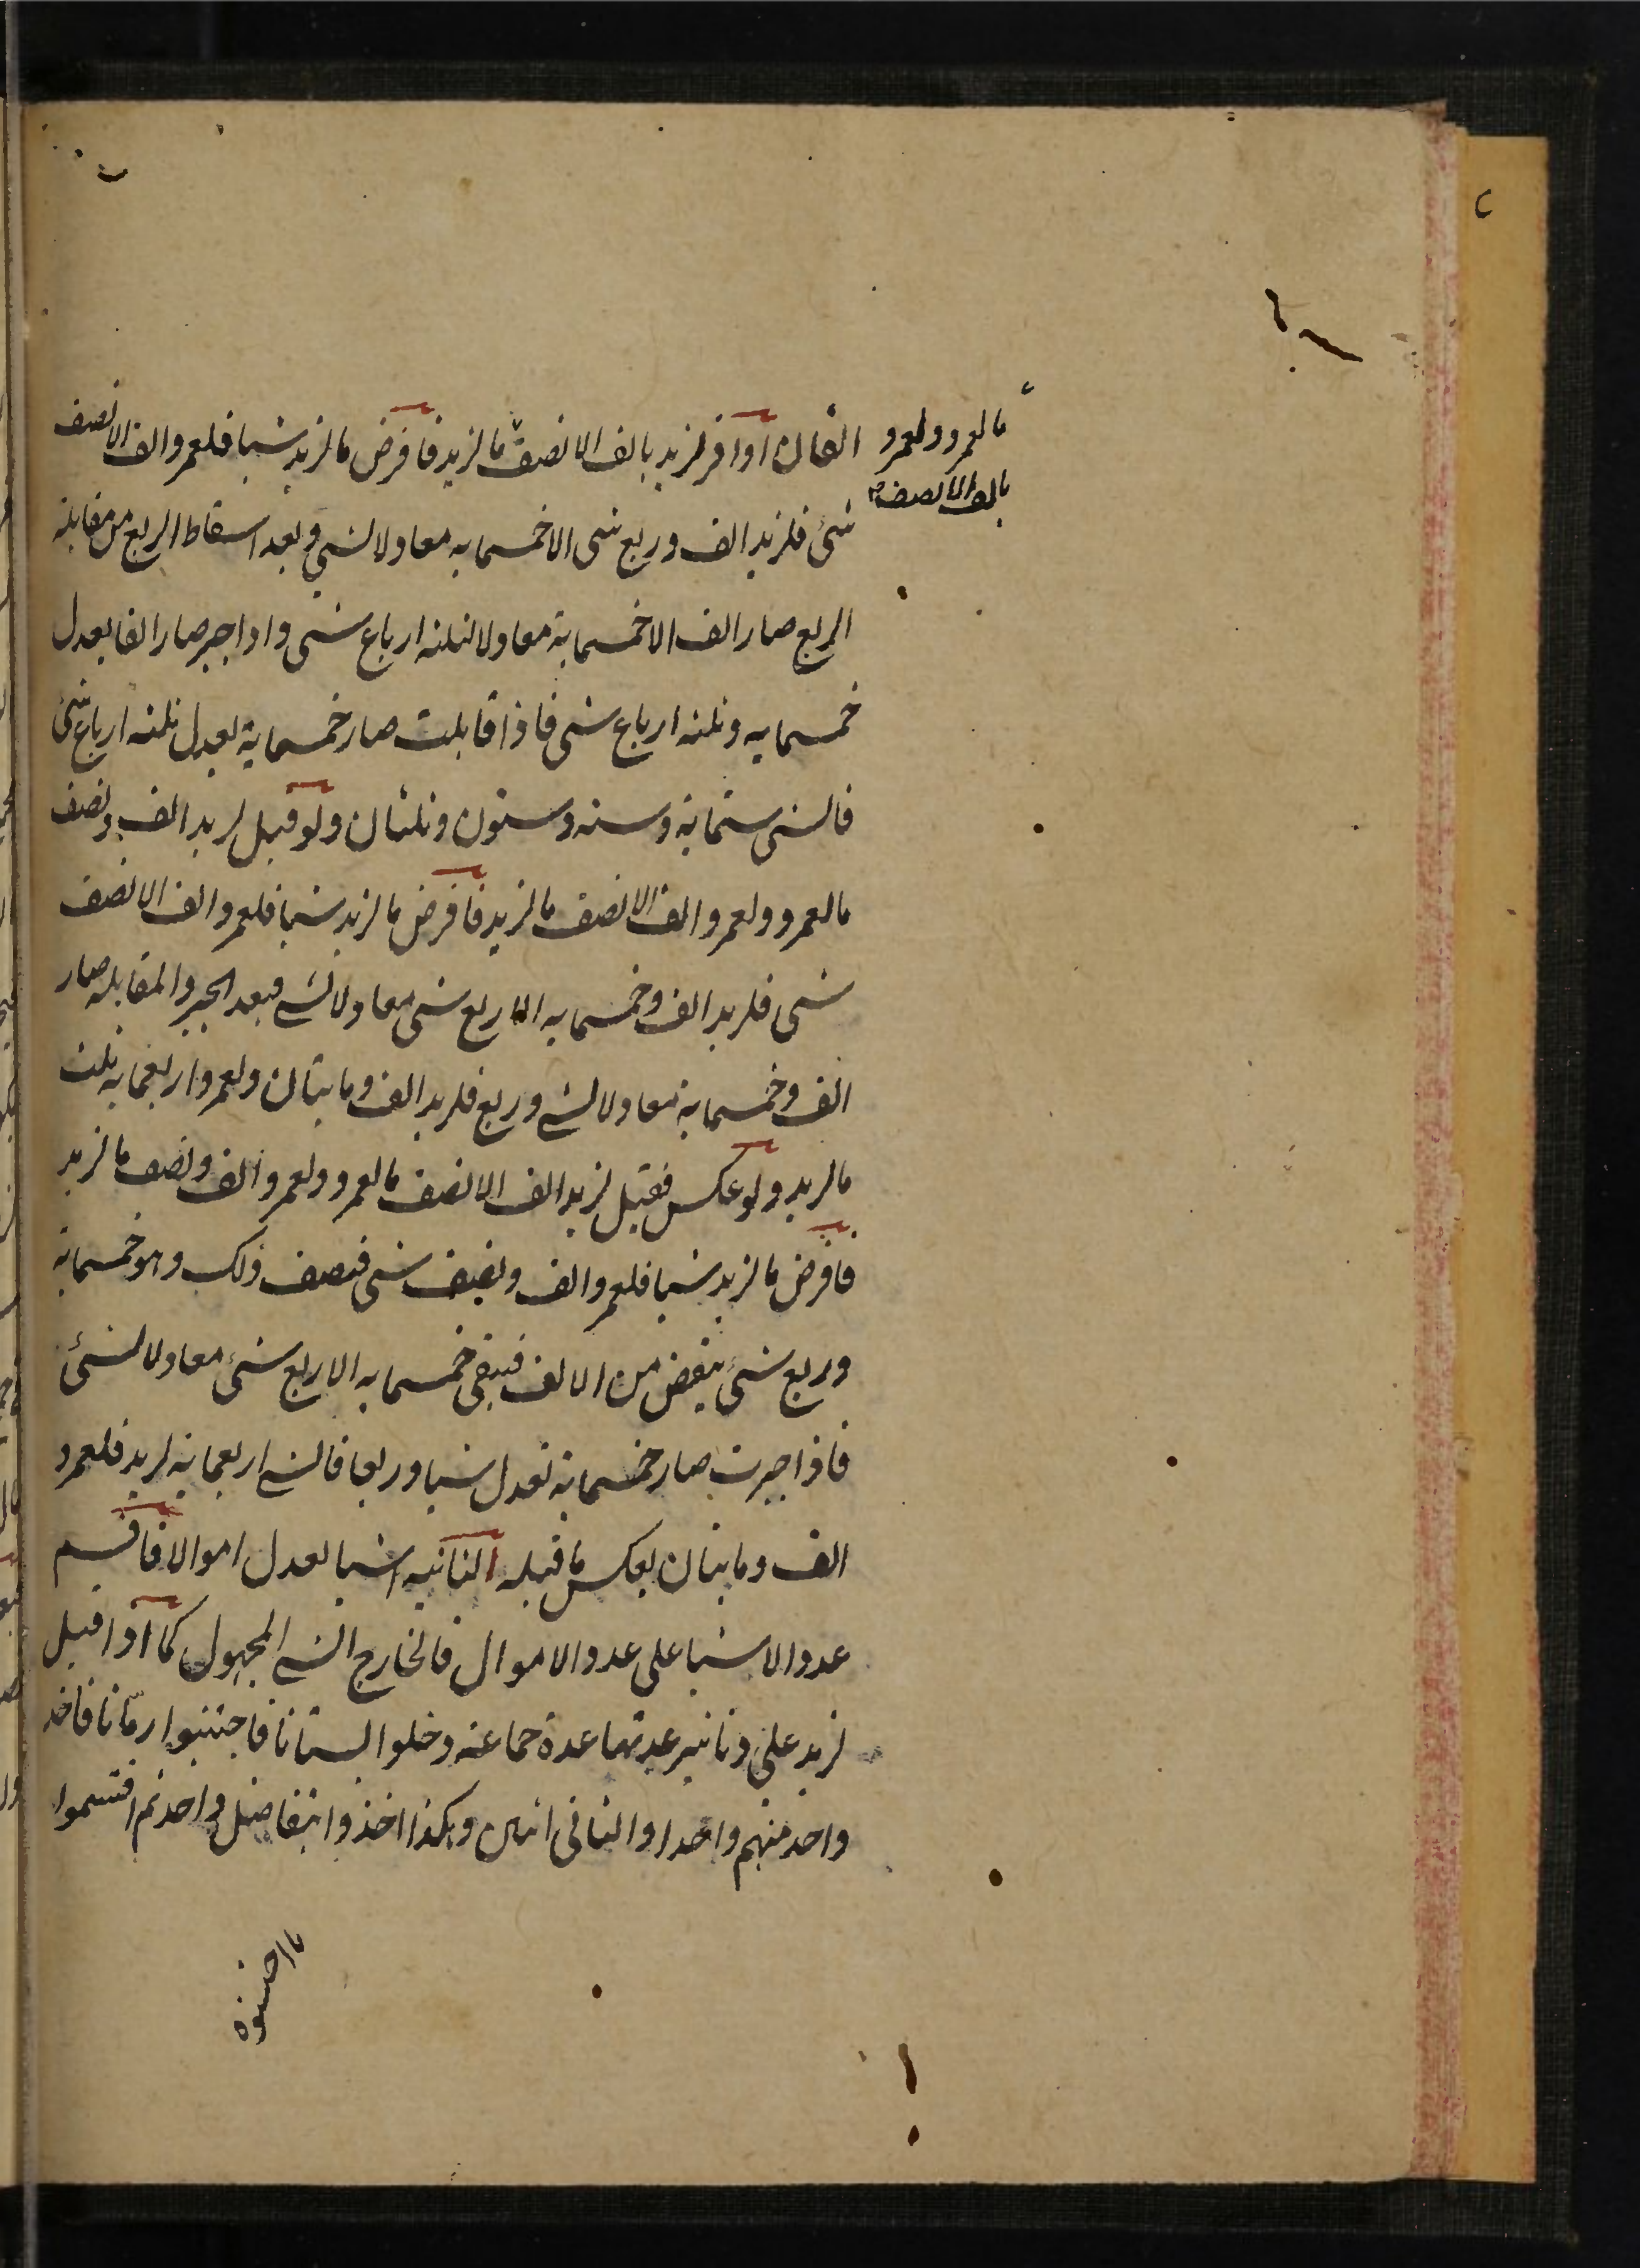 ما لعمرو ولعمرو
بالف الا نصف
القان او اقر لزيد بالف الا نصف ما لزيد فافرض ما لزيد شيا فلعمرو الف الا نصف
شئ فلزيد الف وربع شى الا خمسمايه معادلا لشى وبعد اسقاط الربع من مقابله
الربع صار الف الا خمسماية معادلا لثلثه ارباع شى واذا جبر صار الفا يعدل
خمسمايه وثلثه ارباع شى فاذا قابلت صار خمسماية يعدل ثلثه ارباع شئ
فالشى ستماية وسته وستون وثلثان ولو قيل لزيد الف ونصف
ما لعمرو ولعمرو الف الا نصف ما لزيد فافرض ما لزيد شيا فلعمرو الف الا نصف
شى فلزيد الف وخمسمايه الا ربع شى معادلا لشى فبعد الجبر والمقابله صار
الف وخمسماية معادلا لشى وربع فلزيد الف ومايتان ولعمرو اربعمايه ثلث
ما لزيد ولو عكس فقيل لزيد الف الا نصف ما لعمرو ولعمرو الف ونصف ما لزيد
فافرض ما لزيد شيا فلعمرو الف ونصف شى فنصف ذلك وهو خمسماية
وربع شئ ينقص من الالف فيبقى خمسمايه الا ربع شئ معادلا لشئ
فاذا جبرت صار خمسماية تعدل شيا وربعا فالشى اربعماية لزيد فلعمرو
الف ومايتان بعكس ما قبله الثانيه اشيا تعدل اموالا فاقسم
عدد الاشيا على عدد الاموال فالخارج الشى المجهول كما اذا قيل
لزيد على دنانير عدتها عدة جماعة دخلوا بستانا فاجتنبوا رمانا فاخذ
واحد منهم واحدا والثانى اثنين وهكذا اخذوا بتفاضل واحد ثم اقتسموا
ما اجتنوه